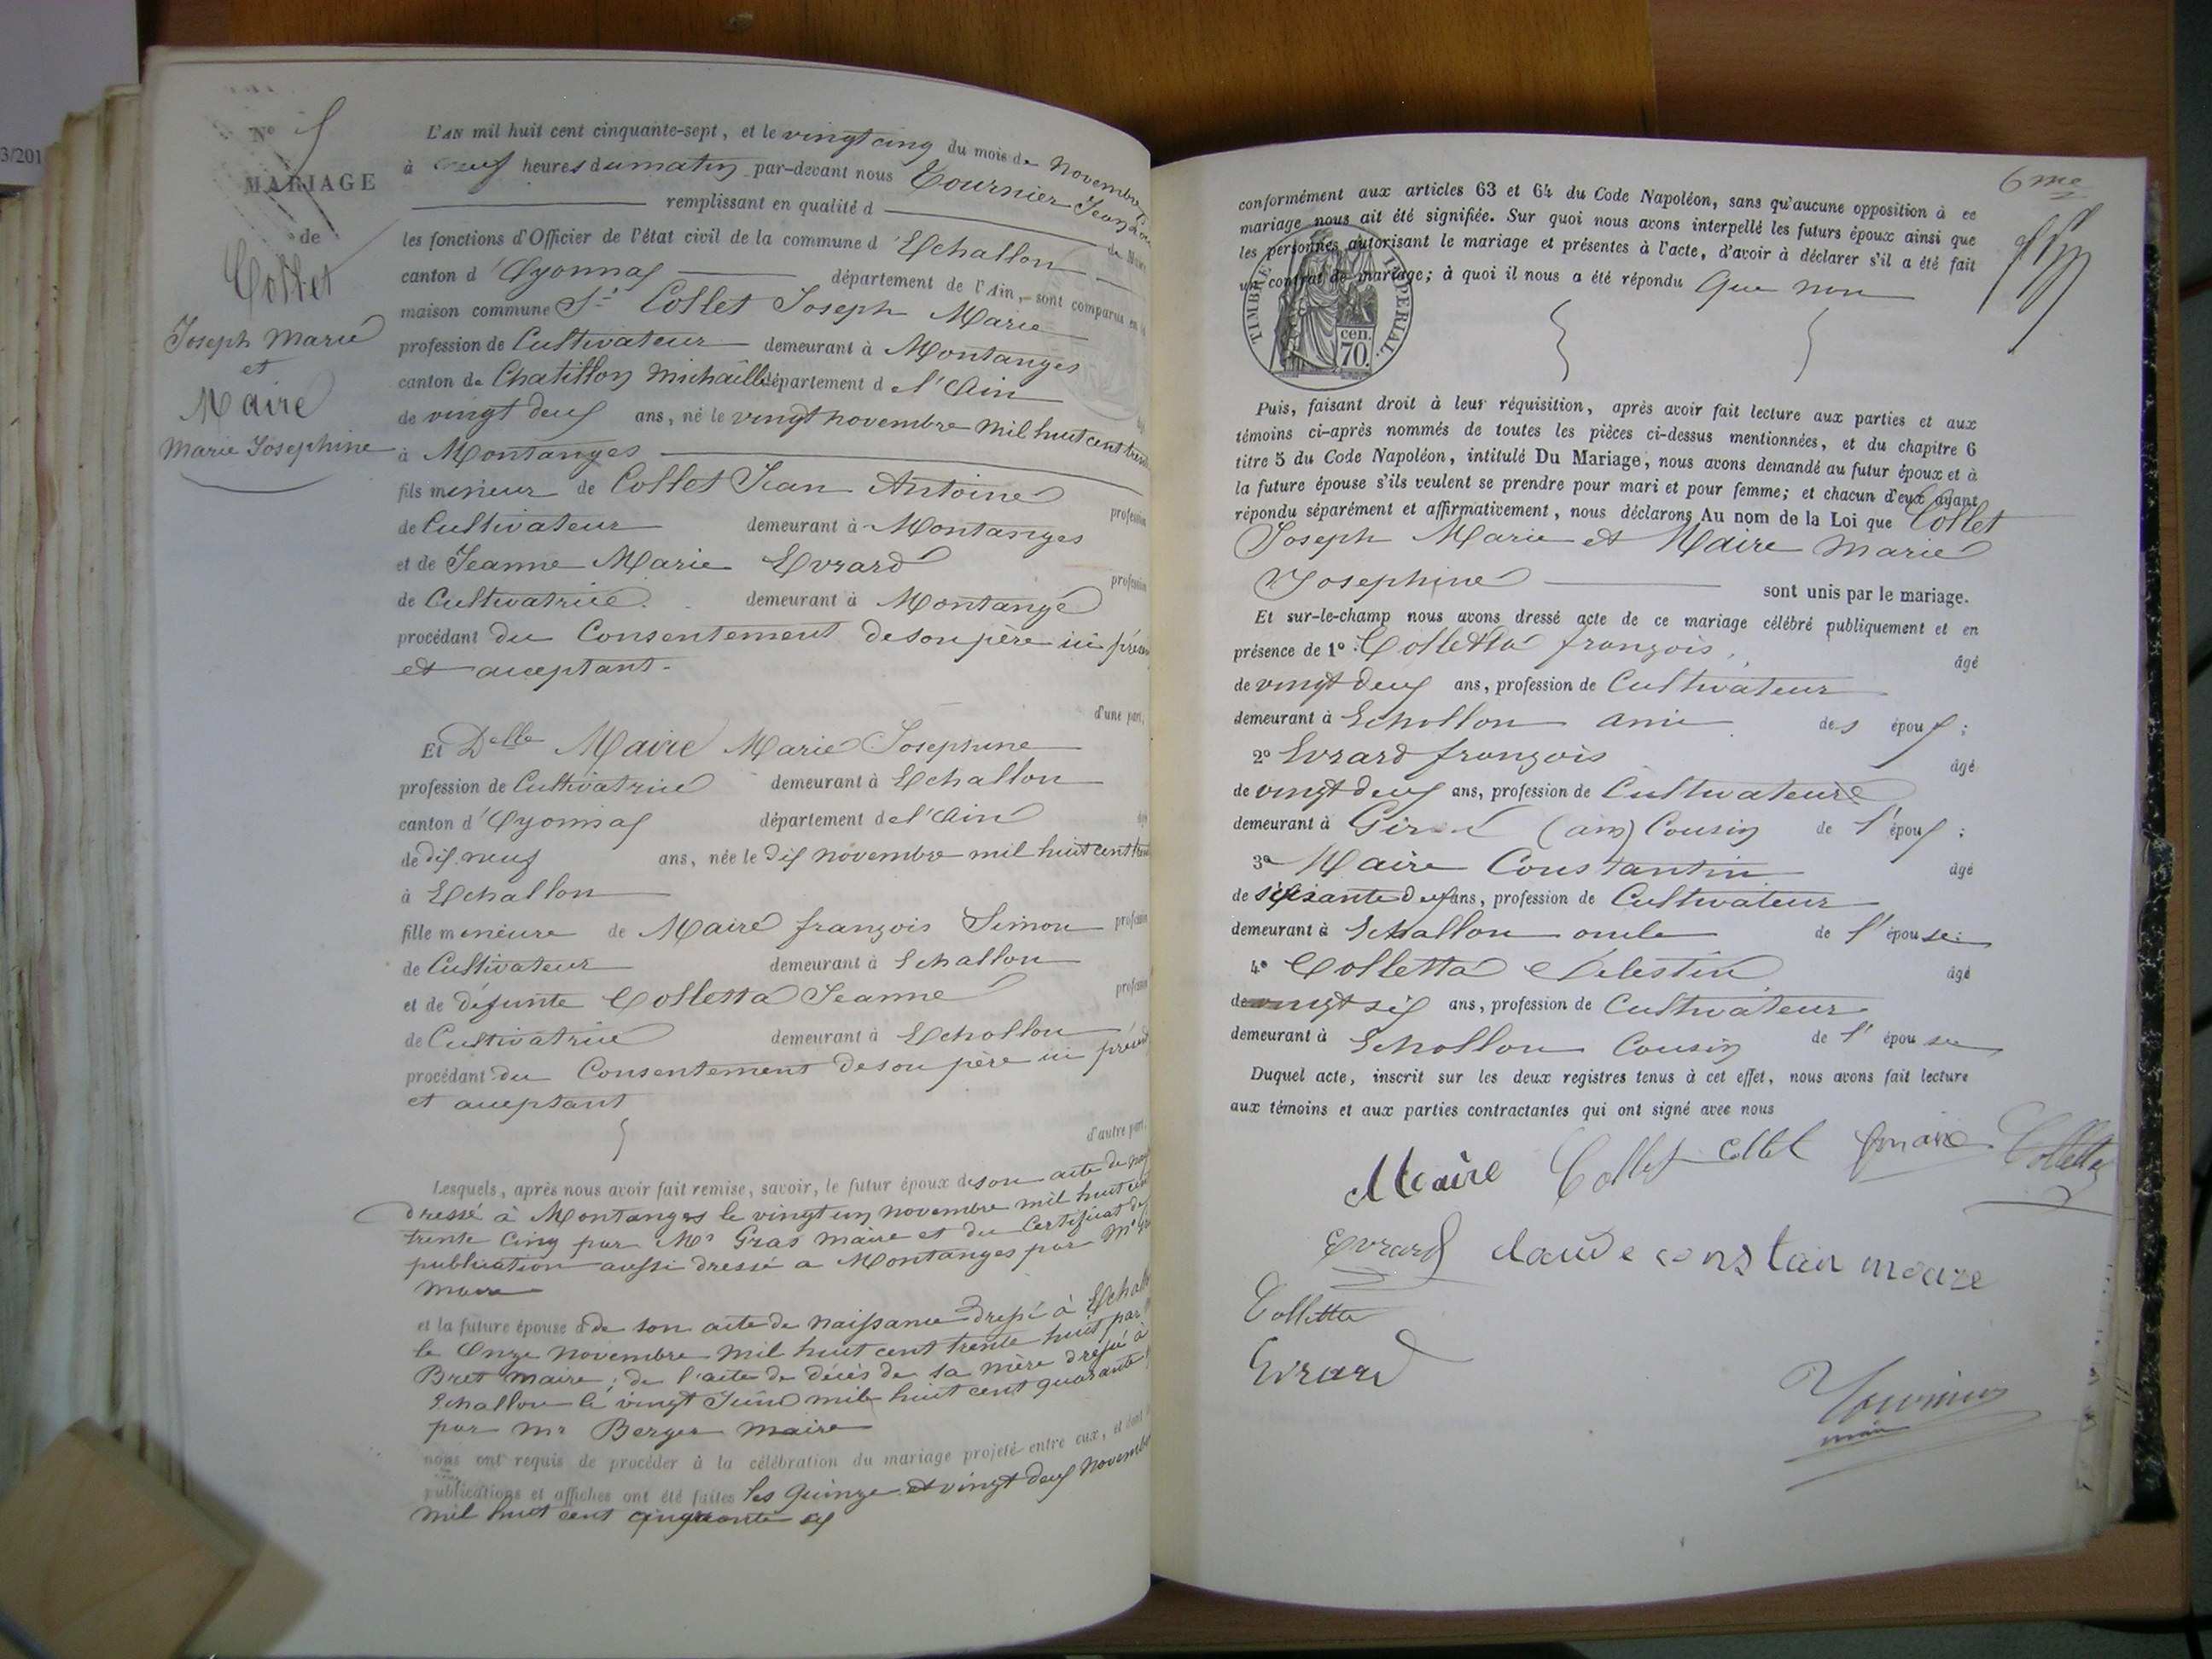 3/201
N° 5
MARIAGE
de
Collet
Joseph Marie
et
Maire
Marie Josephine
L'AN mil huit cent cinquante-sept, et le vingt cinq du mois de Novembre
à neuf heures du matin par-devant nous Tournier Jean
remplissant en qualité d
les fonctions d'Officier de l'état civil de la commune d'Echallon
canton d'Oyonnax département de l'Ain, sont comparus en la
maison commune Sr Collet Joseph Marie
profession de Cultivateur demeurant à Montanges
canton de Chatillon Michaille département de l'Ain
de vingt deux ans, né le vingt novembre mil huit cent trente
à Montanges
fils mineur de Collet Jean Antoine profession
de Cultivateur demeurant à Montanges
et de Jeanne Marie Evrard profession
de Cultivatrice demeurant à Montange
procédant du Consentement de son père ici présent
et acceptant.
d'une part,
Et Delle Maire Marie Josephine
profession de Cultivatrice demeurant à Echallon
canton d'Oyonnax département de l'Ain
de dix neuf ans, née le dix novembre mil huit cent trente
à Echallon
fille mineure de Maire françois Simon profession
de Cultivateur demeurant à Echallon
et de défunte Colletta Jeanne profession
de Cultivatrice demeurant à Echallon
procédant du Consentement de son père ici présent
et acceptant
d'autre part.
Lesquels, après nous avoir fait remise, savoir, le futur époux de son acte de
dressé à Montanges le vingt un novembre mil huit cent
trente cinq par Mr Gras maire et du Certificat de
publication aussi dressé a Montanges par Mr
maire
et la future épouse de son acte de naissance dressé à
le Onze novembre mil huit cent trente huit par
Bret maire; de l'acte de décès de sa mère dressé à
Echallon le vingt Juin mil huit cent quarante
par mr Berger maire
nous ont requis de procéder à la célébration du mariage projeté entre eux, et dont
publications et affiches ont été faites les quinze et vingt deux novembre
mil huit cent cinquante sept
6me
conformément aux articles 63 et 64 du Code Napoléon, sans qu'aucune opposition à ce
mariage nous ait été signifiée. Sur quoi nous avons interpellé les futurs époux ainsi que
les personnes autorisant le mariage et présentes à l'acte, d'avoir à déclarer s'il a été fait
un contrat de mariage; à quoi il nous a été répondu Que non
TIMBRE IMPERIAL.
cen.
70.
Puis, faisant droit à leur réquisition, après avoir fait lecture aux parties et aux
témoins ci-après nommés de toutes les pièces ci-dessus mentionnées, et du chapitre 6
titre 5 du Code Napoléon, intitulé Du Mariage, nous avons demandé au futur époux et à
la future épouse s'ils veulent se prendre pour mari et pour femme; et chacun d'eux ayant
répondu séparément et affirmativement, nous déclarons Au nom de la Loi que Collet
Joseph Marie et Maire Marie
Josephine sont unis par le mariage.
Et sur-le-champ nous avons dressé acte de ce mariage célébré publiquement et en
présence de 1° Colletta françois âgé
de vingt deux ans, profession de Cultivateur
demeurant à Echallon ami des époux;
2° Evrard françois âgé
de vingt deux ans, profession de Cultivateur
demeurant à (ain) Cousin de l'époux;
3° Maire Constantin âgé
de soixante deux ans, profession de Cultivateur
demeurant à Echallon oncle de l'épouse;
4° Colletta Célestin âgé
de vingt six ans, profession de Cultivateur
demeurant à Echallon Cousin de l'épouse
Duquel acte, inscrit sur les deux registres tenus à cet effet, nous avons fait lecture
aux témoins et aux parties contractantes qui ont signé avec nous
Maire Collet Collet maire Colletta
Evrard claude constan maire
Colletta
Evrard
Tournier
maire